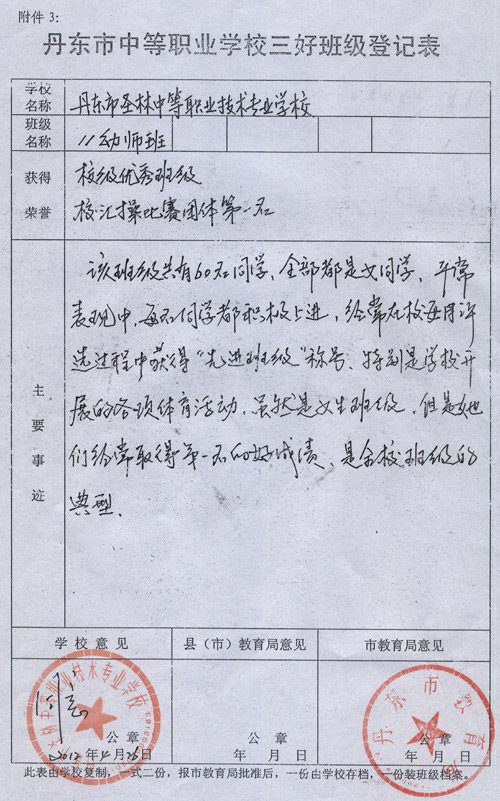 附件 3:
丹东市中等职业学校三好班级登记表
学校名称 丹东市圣林中等职业技术专业学校
班级名称 11幼师班
获得荣誉 校级优秀班级
校汇操比赛团体第一名
主要事迹
该班级共有60名同学、全部都是女同学、平常
表现中,每名同学都积极上进,经常在校每月评
选过程中获得“先进班级”称号、特别是学校开
展的各项体育活动,虽然是女生班级,但是她
们经常取得第一名的好成绩,是全校班级的
典型.
学校意见 县(市)教育局意见 市教育局意见
公章 公章 公章
2012年4月26日 年 月 日 年 月 日
此表由学校复制,一式二份,报市教育局批准后,一份由学校存档,一份装班级档案。
丹东市教育局